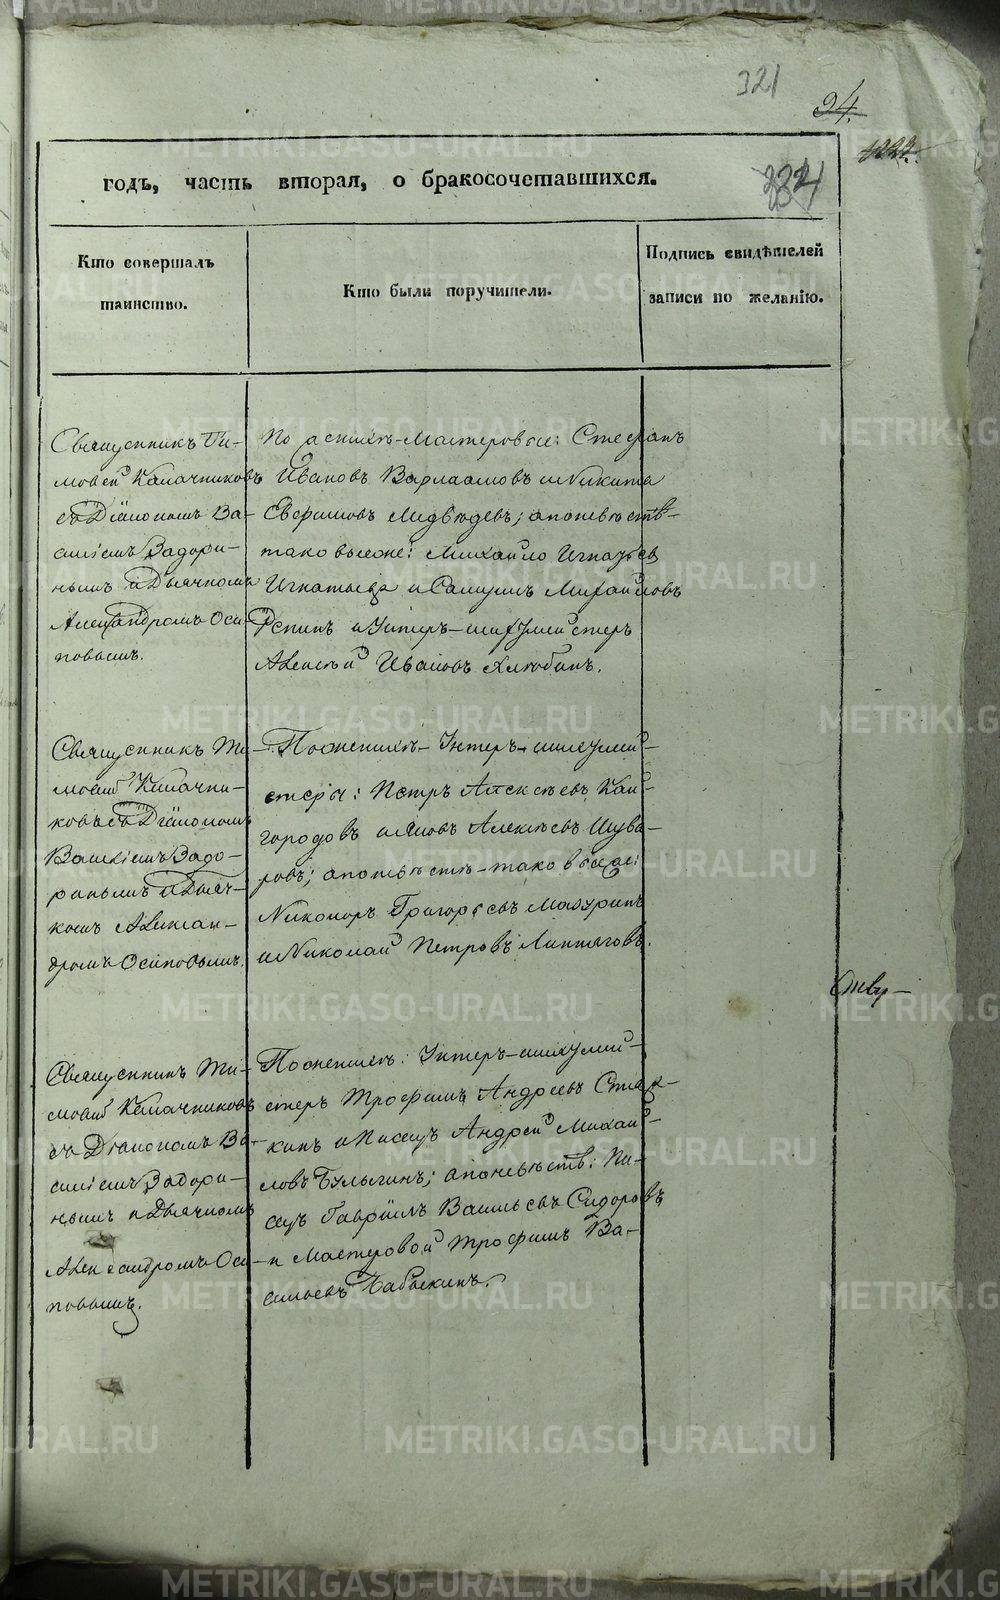 321
94.
годъ, часть вторая, о бракосочетавшихся.
Кто совершалъ
таинство.
Кто были поручители.
Подпись свидѣтелей
записи по желанію.
Священникъ Ти-
мовей Калачниковъ
съ Діакономъ Ва-
силіемъ Задори-
нымъ и Дьячкомъ
Александромъ Оси-
повымъ.
По женихѣ Мастеровые: Стефанъ
Ивановъ Варлаамовъ и Никита
Ефимовъ Медвѣдевъ; а по невѣстѣ-
таковыеже: Михайло Игнатьевъ
и Самуилъ Михайловъ
Репинъ и Унтеръ-шихтмейстеръ
Алексѣй Ивановъ Хлюбинъ.
Священникъ Ти-
мовей Калачни-
ковъ съ Діакономъ
Василіемъ Задо-
ринымъ и Дьяч-
комъ Алексан-
дромъ Осиповымъ.
По женихѣ Унтеръ-шихтмей-
стеры: Петръ Алексѣевъ Кай-
городовъ и Яковъ Алексѣевъ Шува-
ровъ; а по невѣстѣ таковыеже:
Никоноръ Григорьевъ Мазуринъ
и Николай Петровъ Ляпцовъ.
Священникъ Ти-
мовей Калачниковъ
съ Діакономъ Ва-
силіемъ Задори-
нымъ и Дьячкомъ
Александромъ Оси-
повымъ.
По женихѣ: Унтеръ-шихтмей-
стеръ Трофимъ Андреевъ
и Писецъ Андрей Михай-
ловъ Булыгинъ; а по невѣстѣ: Пи-
сецъ Гавріилъ Васильевъ Сидоровъ
и Мастеровой Трофимъ Ва-
сильевъ Бабыкинъ.
METRIKI.GASO-URAL.RU